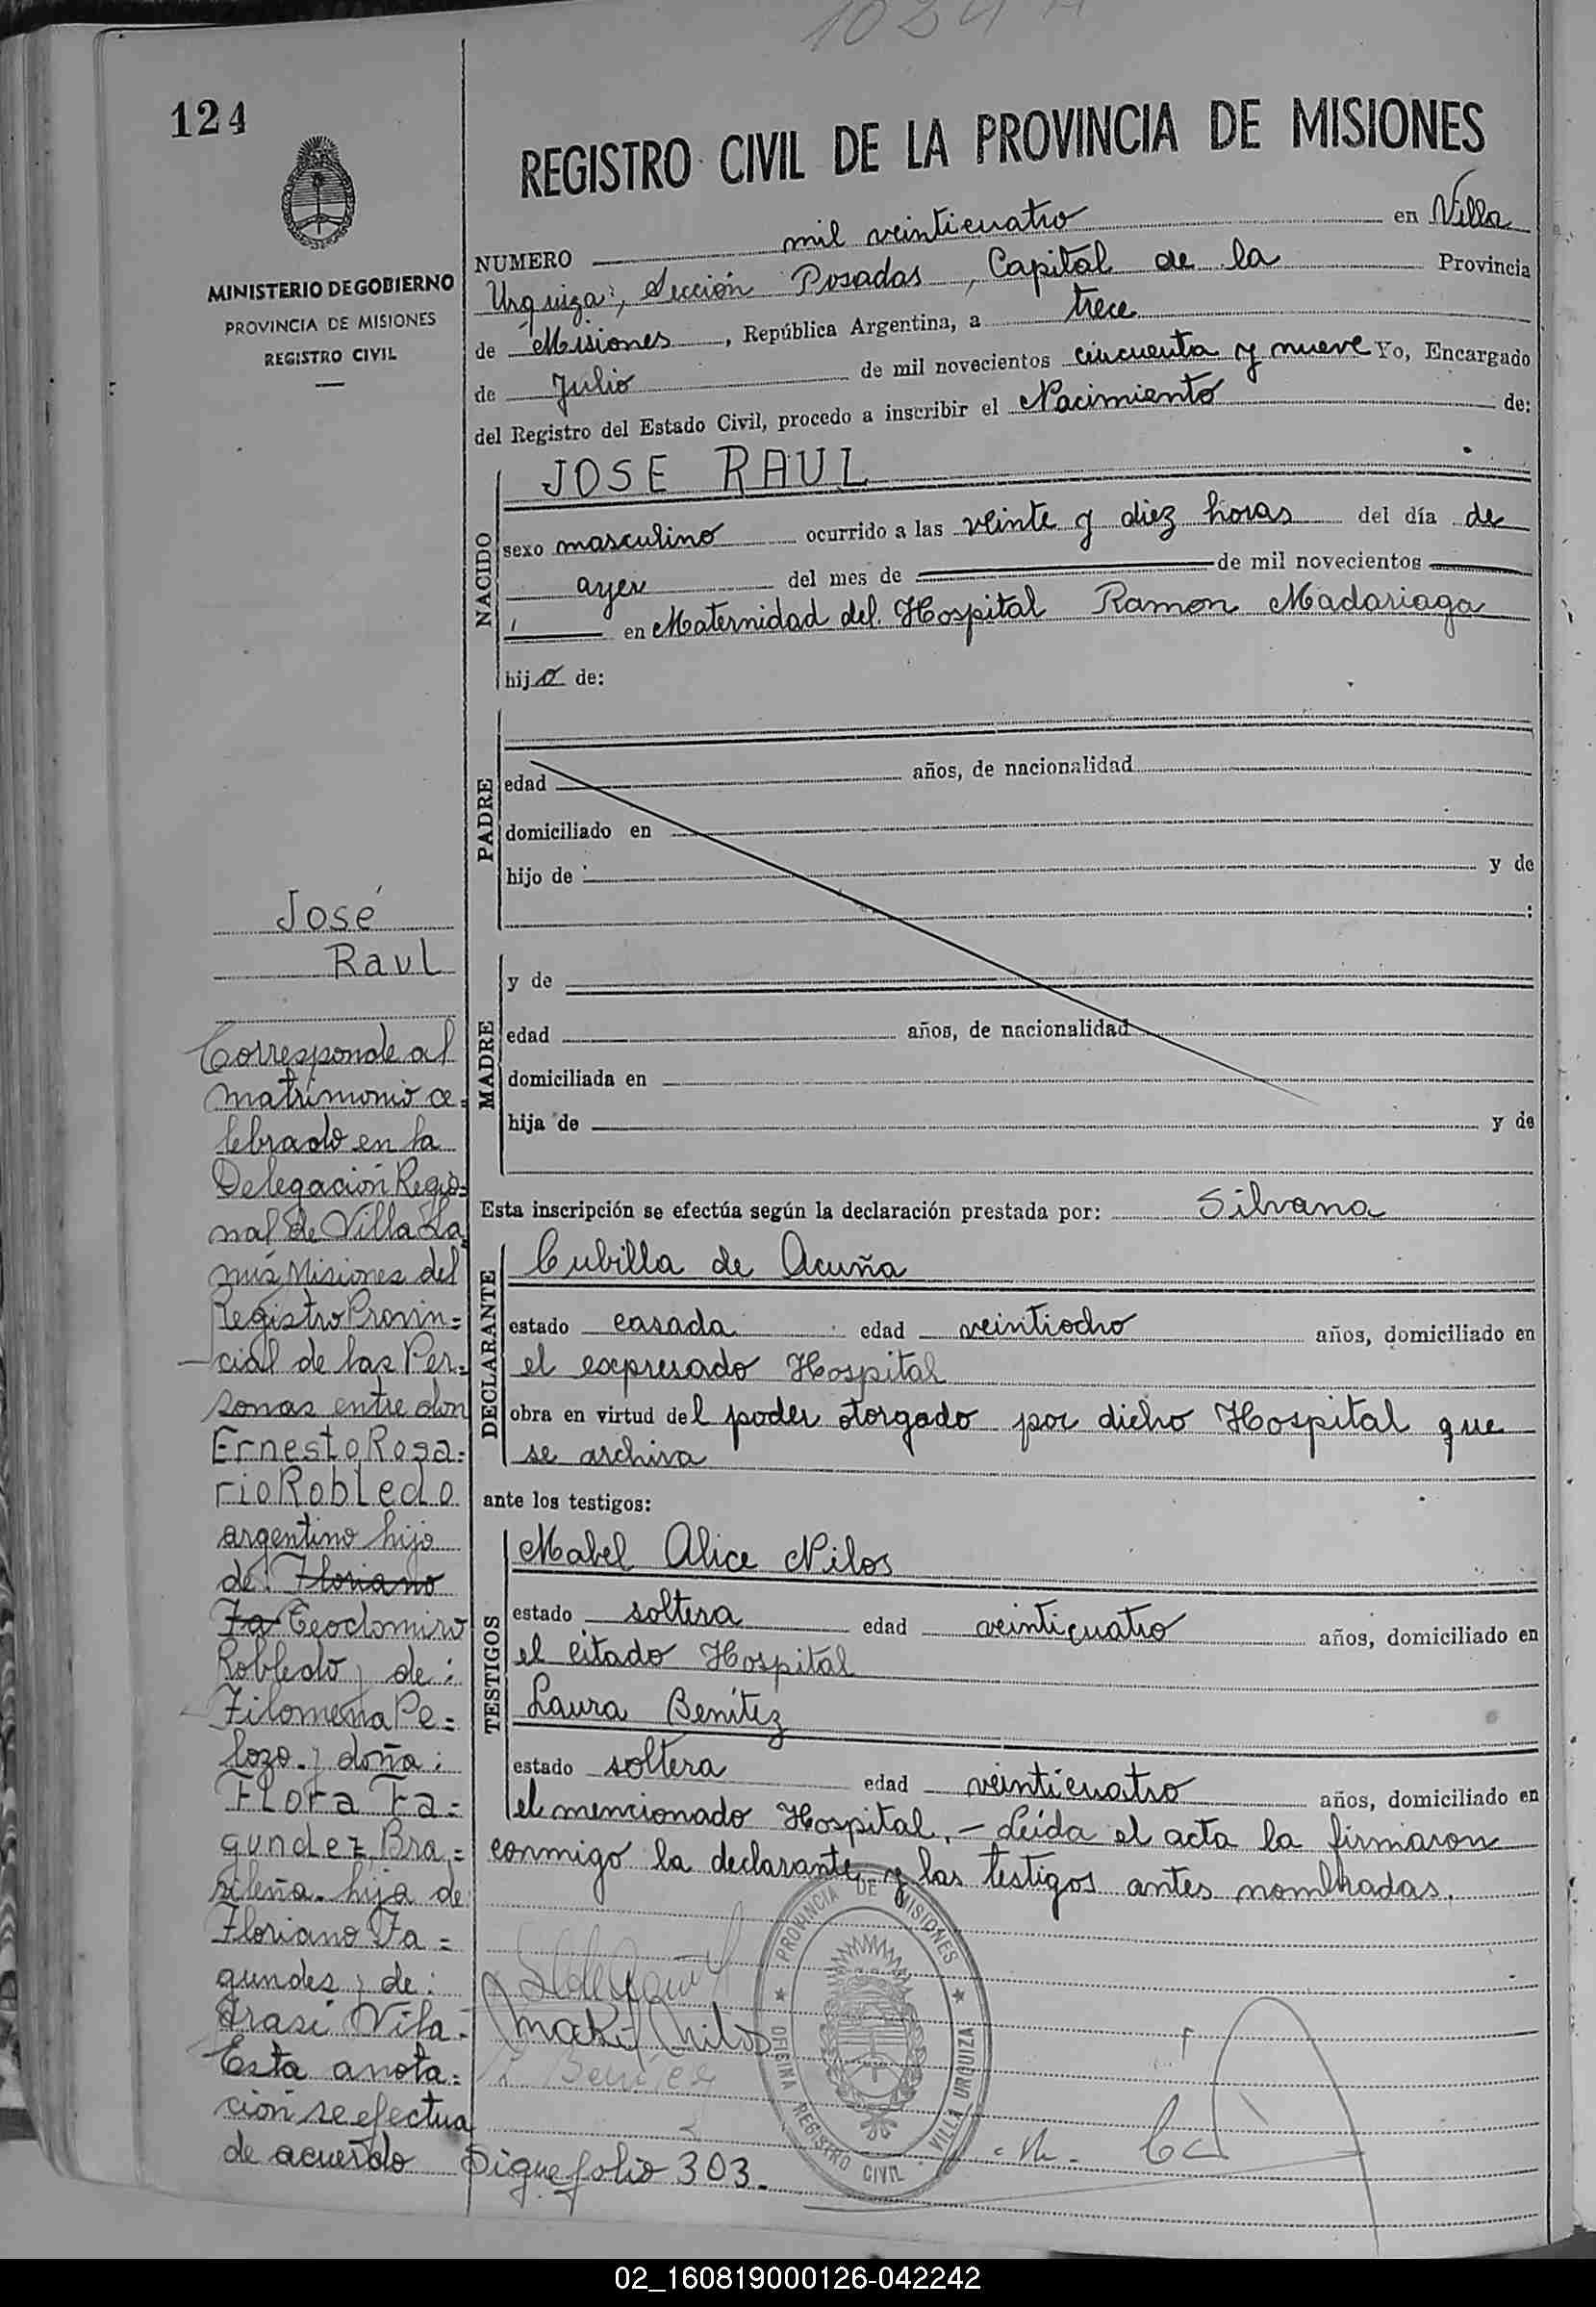 1024
124
REGISTRO CIVIL DE LA PROVINCIA DE MISIONES
MINISTERIO DE GOBIERNO
PROVINCIA DE MISIONES
REGISTRO CIVIL
NUMERO mil veinticuatro en Villa
Urquiza, Sección Posadas, Capital de la Provincia
de Misiones, República Argentina, a trece
de Julio de mil novecientos cincuenta y nueve Yo, Encargado
del Registro del Estado Civil, procedo a inscribir el Nacimiento de:
NACIDO
JOSE RAUL
sexo masculino ocurrido a las veinte y diez horas del día de
ayer del mes de de mil novecientos
en Maternidad del Hospital Ramon Madariaga
hijo de:
PADRE
edad años, de nacionalidad
domiciliado en
hijo de y de
:
MADRE
y de
edad años, de nacionalidad
domiciliada en
hija de y de
Esta inscripción se efectúa según la declaración prestada por: Silvana
DECLARANTE
Cubilla de Acuña
estado casada edad veintiocho años, domiciliado en
el expresado Hospital
obra en virtud del poder otorgado por dicho Hospital que
se archiva
ante los testigos:
TESTIGOS
Mabel Alice Nilos
estado soltera edad veinticuatro años, domiciliado en
el citado Hospital
Laura Benítez
estado soltera edad veinticuatro años, domiciliado en
el mencionado Hospital.- Leída el acta la firmaron
conmigo la declarante y las testigos antes nombradas.
José
Raul
Corresponde al
matrimonio ce=
lebrado en la
Delegación Regio=
nal de Villa La
nús Misiones del
Registro Provin=
cial de las Per=
sonas entre don
Ernesto Rosa=
rio Robledo
argentino hijo
de: Floriano
Fa Teoclomiro
Robledo y de:
Filomena Pe=
lozo y doña:
Flora Fa=
gundez Bra=
sileña hija de
Floriano Fa=
gundes y de:
Arasi Vila.
Esta anota=
ción se efectua
de acuerdo Sigue folio 303.
Mabel Nilos
L Benítez
PROVINCIA DE MISIONES
OFICINA REGISTRO CIVIL VILLA URQUIZA
02_160819000126-042242